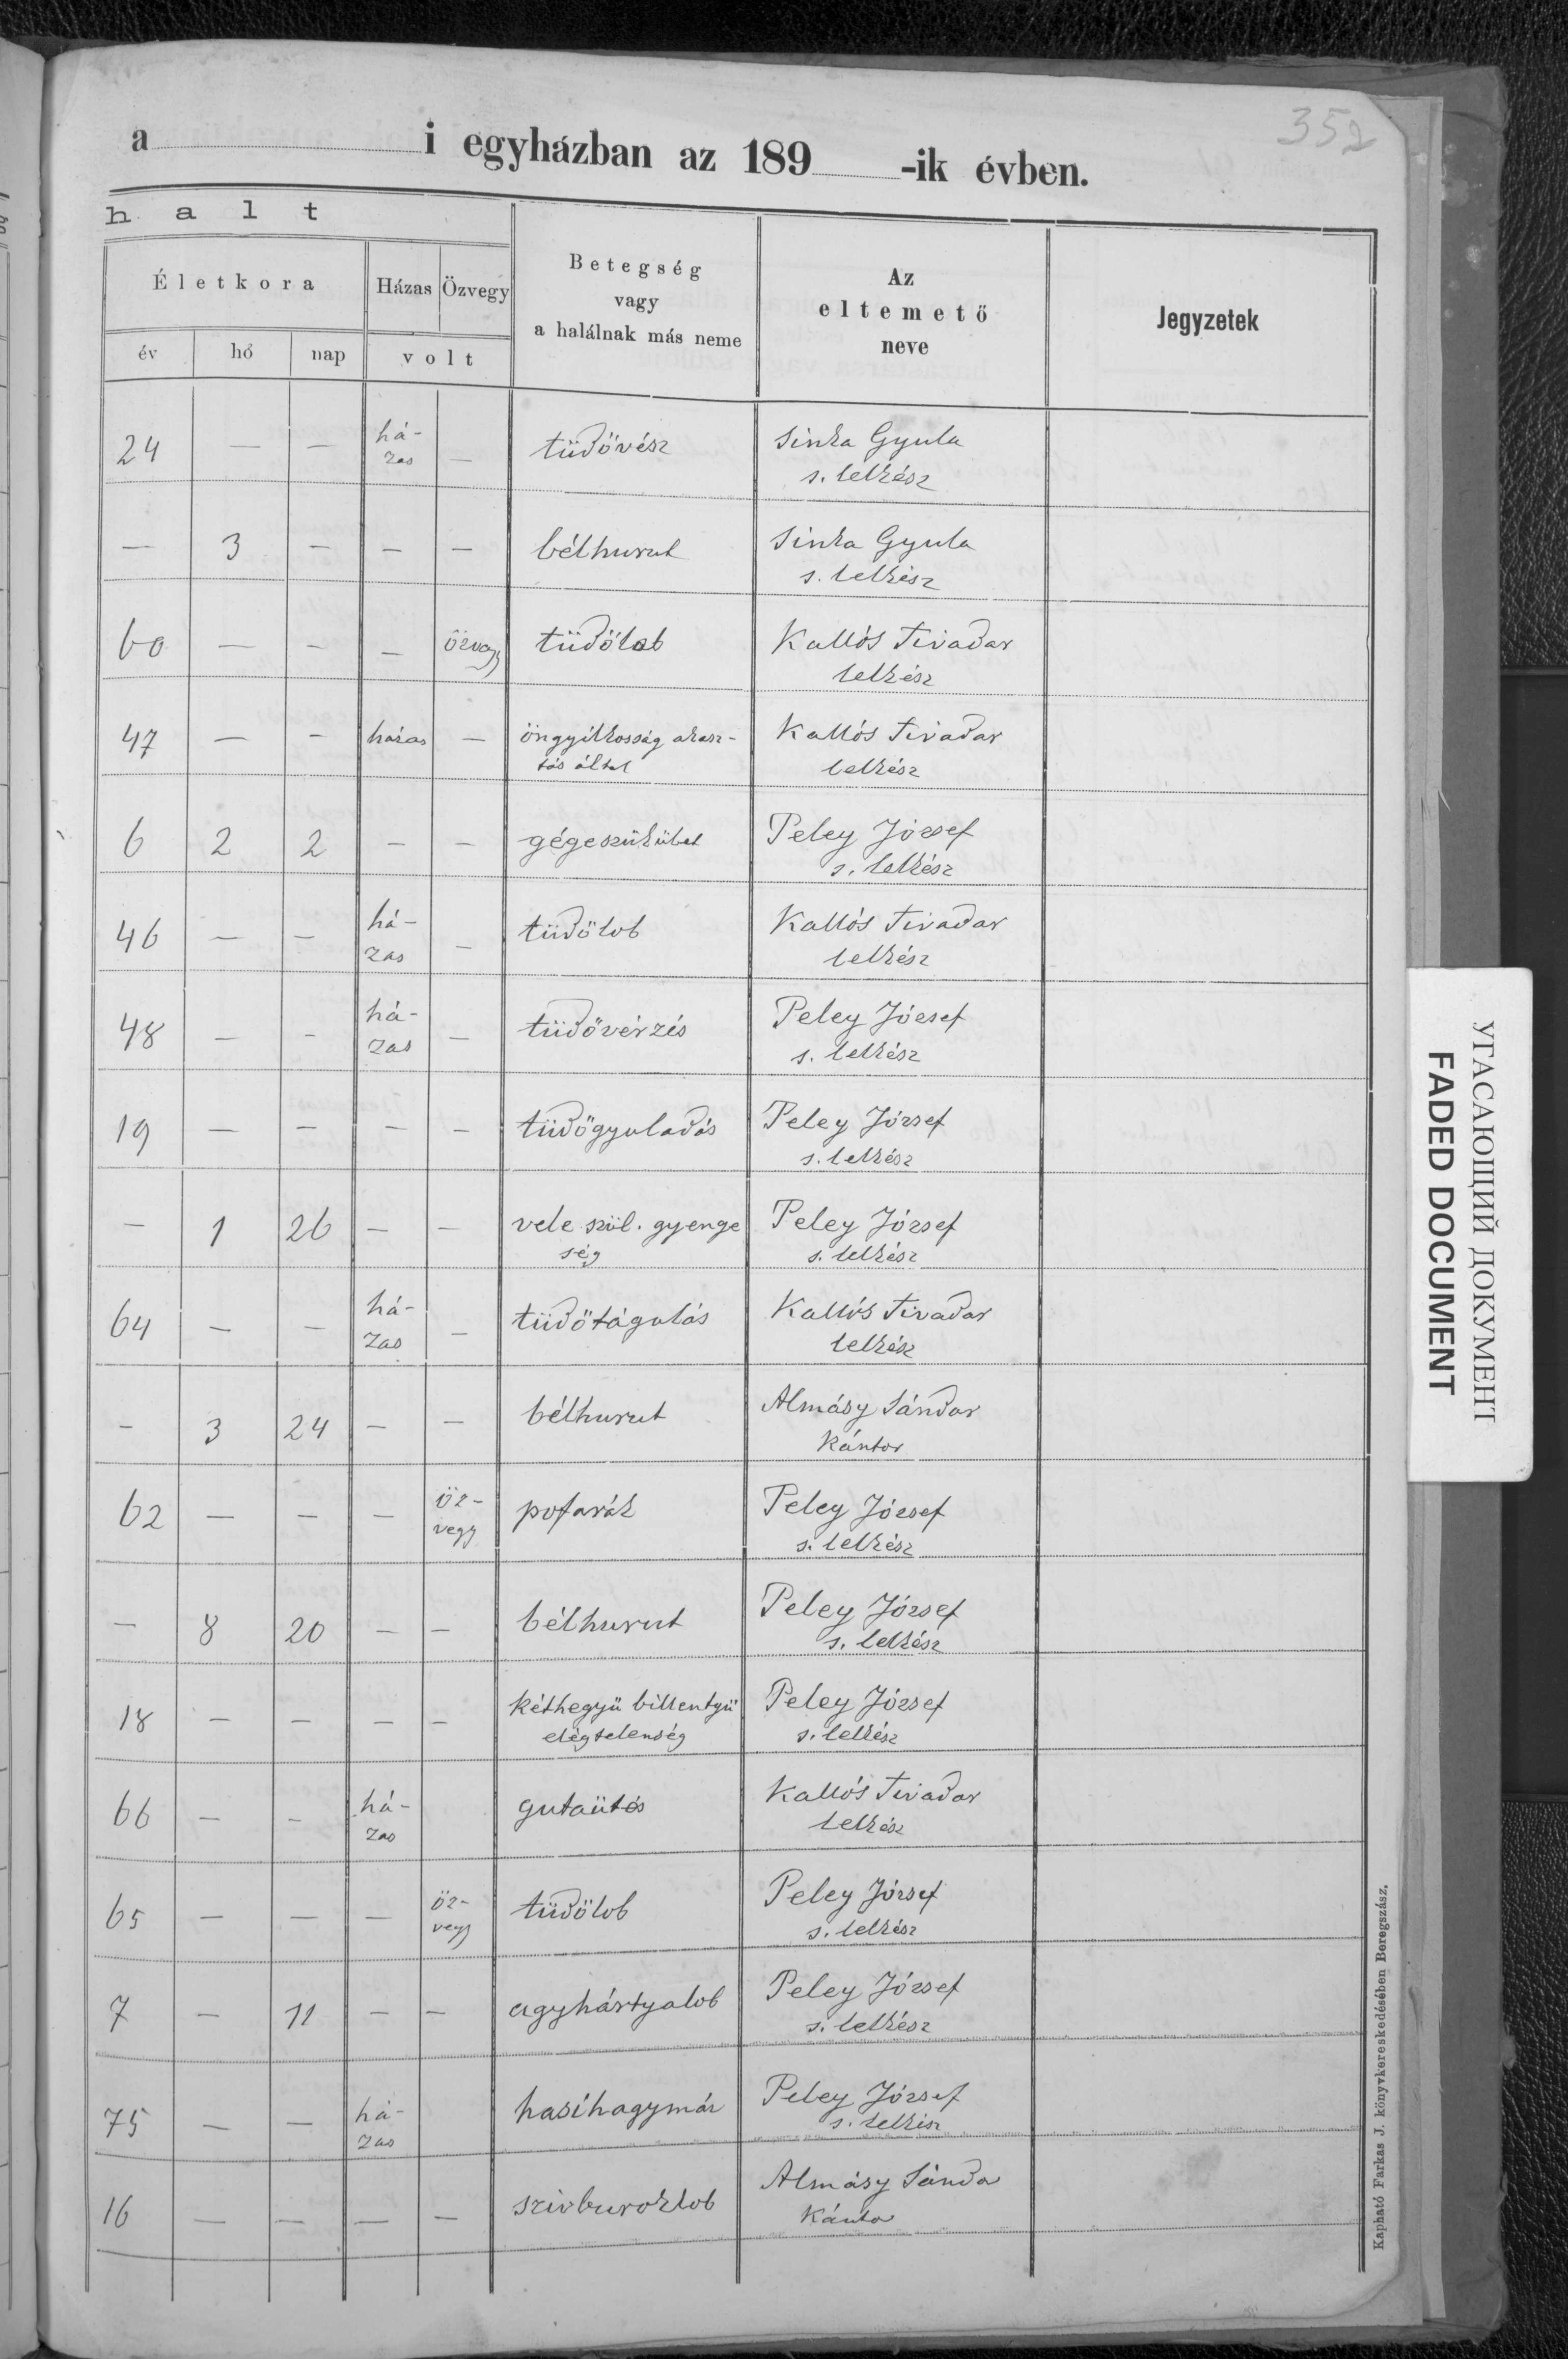 352
a i egyházban az 189 -ik évben.
halt
Életkora
Házas Özvegy
Betegség
vagy
a halálnak más neme
Az
eltemető
neve
Jegyzetek
év hó nap volt
24 — — há-
zas — tüdővész Sinka Gyula
s. lelkész
— 3 — — — bélhurut Sinka Gyula
s. lelkész
60 — — — özvegy tüdőlob Kallós Tivadar
lelkész
47 — — házas — öngyilkosság akasz-
tás által Kallós Tivadar
lelkész
6 2 2 — — gégeszükület Peley József
s. lelkész
46 — — há-
zas — tüdőlob Kallós Tivadar
lelkész
48 — — há-
zas — tüdővérzés Peley József
s. lelkész
19 — — — — tüdőgyuladás Peley József
s. lelkész
— 1 26 — — vele szül. gyenge
ség Peley József
s. lelkész
64 — — há-
zas — tüdőtágulás Kallós Tivadar
lelkész
— 3 24 — — bélhurut Almásy Sándor
kántor
62 — — — öz-
vegy pofarák Peley József
s. lelkész
— 8 20 — — bélhurut Peley József
s. lelkész
18 — — — — kéthegyü billentyü
elégtelenség Peley József
s. lelkész
66 — — há-
zas gutaütés Kallós Tivadar
lelkész
65 — — — öz-
vegy tüdőlob Peley József
s. lelkész
7 — 11 — — agyhártyalob Peley József
s. lelkész
75 — — há-
zas hasihagymáz Peley József
s. lelkész
16 — — — — szivburoklob Almásy Sándor
kántor
Kapható Farkas J. könyvkereskedésében Beregszász.
УГАСАЮЩИЙ ДОКУМЕНТ
FADED DOCUMENT